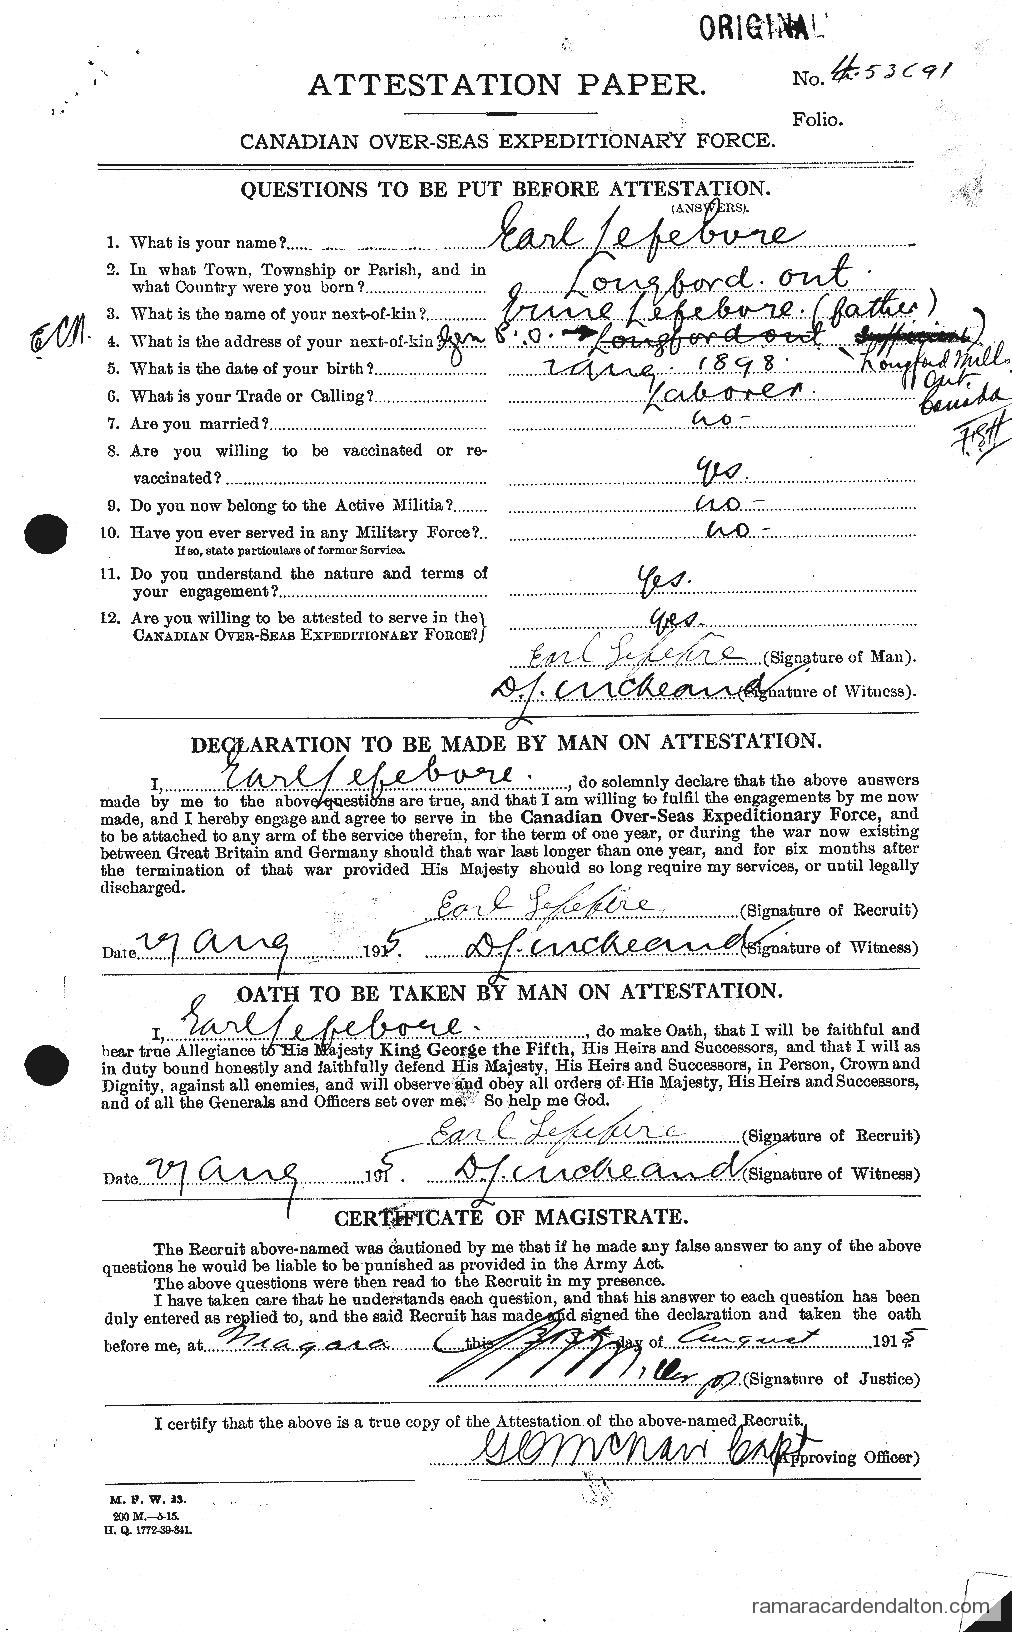 ORIGINAL
ATTESTATION PAPER.
No.
Folio.
CANADIAN OVER-SEAS EXPEDITIONARY FORCE.
QUESTIONS TO BE PUT BEFORE ATTESTATION.
(ANSWERS).
1. What is your name? Earl Lefebvre
2. In what Town, Township or Parish, and in
what Country were you born? Longford. ont.
3. What is the name of your next-of-kin? Lefebvre. (father)
4. What is the address of your next-of-kin Gen P.O. Longford ont
5. What is the date of your birth? Aug. 1898. Longford Mills
Ont.
6. What is your Trade or Calling? Laborer. Canada
7. Are you married? no-
8. Are you willing to be vaccinated or re-
vaccinated? yes.
9. Do you now belong to the Active Militia? no-
10. Have you ever served in any Military Force?.. no-
If so, state particulars of former Service.
11. Do you understand the nature and terms of
your engagement? Yes.
12. Are you willing to be attested to serve in the
CANADIAN OVER-SEAS EXPEDITIONARY FORCE? yes.
Earl Lefebvre (Signature of Man).
(Signature of Witness).
DECLARATION TO BE MADE BY MAN ON ATTESTATION.
I, Earl Lefebvre., do solemnly declare that the above answers
made by me to the above questions are true, and that I am willing to fulfil the engagements by me now
made, and I hereby engage and agree to serve in the Canadian Over-Seas Expeditionary Force, and
to be attached to any arm of the service therein, for the term of one year, or during the war now existing
between Great Britain and Germany should that war last longer than one year, and for six months after
the termination of that war provided His Majesty should so long require my services, or until legally
discharged.
Earl Lefebvre (Signature of Recruit)
Date Aug 1915. (Signature of Witness)
OATH TO BE TAKEN BY MAN ON ATTESTATION.
I, Earl Lefebvre., do make Oath, that I will be faithful and
bear true Allegiance to His Majesty King George the Fifth, His Heirs and Successors, and that I will as
in duty bound honestly and faithfully defend His Majesty, His Heirs and Successors, in Person, Crown and
Dignity, against all enemies, and will observe and obey all orders of His Majesty, His Heirs and Successors,
and of all the Generals and Officers set over me. So help me God.
Earl Lefebvre (Signature of Recruit)
Date Aug 1915. (Signature of Witness)
CERTIFICATE OF MAGISTRATE.
The Recruit above-named was cautioned by me that if he made any false answer to any of the above
questions he would be liable to be punished as provided in the Army Act.
The above questions were then read to the Recruit in my presence.
I have taken care that he understands each question, and that his answer to each question has been
duly entered as replied to, and the said Recruit has made and signed the declaration and taken the oath
before me, at Niagara this day of August 1915
(Signature of Justice)
I certify that the above is a true copy of the Attestation of the above-named Recruit.
Capt (Approving Officer)
M. F. W. 23.
200 M.—5-15.
H. Q. 1772-39-841.
ramaracardendalton.com